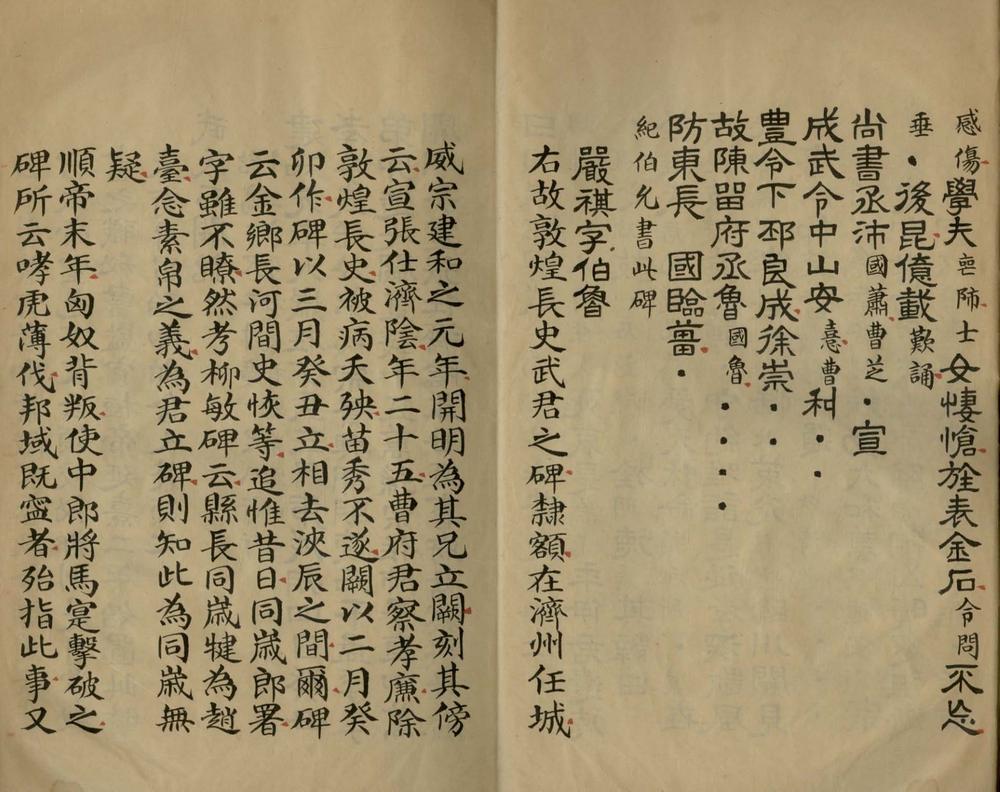 感傷學夫喪師士女悽愴旌表金石令問不忘
垂・後昆億載歎誦
尚書丞沛國蕭曹芝・宣
成武令中山安憙曹种・・
豐令下邳良成徐崇・・
故陳留府丞魯國魯・・・・
防東長 國臨菑・
紀伯允書此碑
嚴祺字伯魯
右故敦煌長史武君之碑隸額在濟州任城
威宗建和之元年開明為其兄立闕刻其傍
云宣張仕濟陰年二十五曹府君察孝廉除
敦煌長史被病夭殀苗秀不遂闕以二月癸
卯作碑以三月癸丑立相去浹辰之間爾碑
云金鄉長河間史恢等追惟昔日同歲郎署
字雖不瞭然考柳敏碑云縣長同歲犍為趙
臺念素帛之義為君立碑則知此為同歲無
疑
順帝末年匈奴背叛使中郎將馬寔擊破之
碑所云哮虎薄伐邦域既寍者殆指此事又